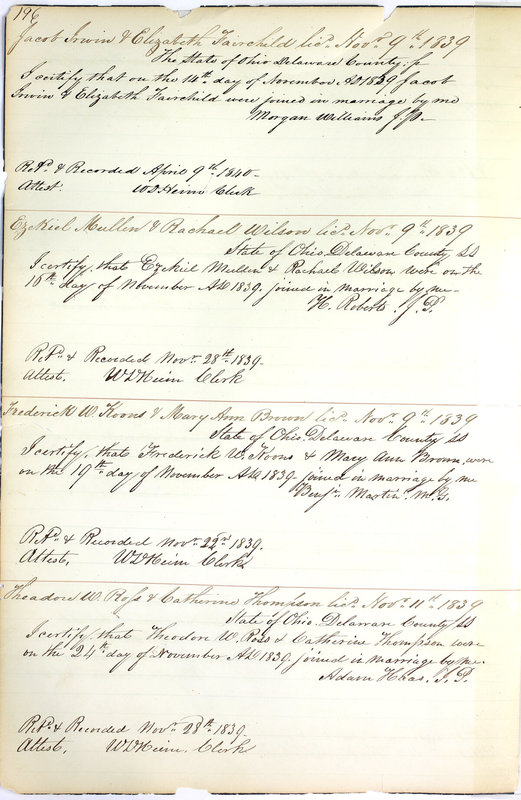 196
Jacob Irwin & Elizabeth Fairchild licd. Novr. 9th. 1839
The State of Ohio Delaware County, ss
I certify that on the 14th. day of November AD 1839 Jacob
Irwin & Elizabeth Fairchild were joined in marriage by me
Morgan Williams J.P.
Retd. & Recorded April 9th. 1840-
Attest. W D Heim Clerk
Ezekiel Mullen & Rachael Wilson licd. Novr. 9th. 1839
State of Ohio, Delaware County SS
I certify, that Ezekiel Mullen & Rachael Wilson were on the
10th. day of November AD 1839. joined in marriage by me-
H. Roberts. J.P.
Retd. & Recorded Novr. 28th. 1839-
Attest, W D Heim Clerk
Frederick W. Koons & Mary Ann Brown licd. Novr. 9th. 1839
State of Ohio, Delaware County SS
I certify, that Frederick W. Koons & Mary Ann Brown, were
on the 19th. day of November AD 1839. joined in marriage by me
Benjn. Martin. M.G.
Retd. & Recorded Novr. 22nd. 1839.
Attest, W D Heim Clerk
Theadore W. Ross & Catherine Thompson licd. Novr. 11th. 1839
State of Ohio. Delaware County SS
I certify, that Theodore W. Ross & Catherine Thompson were
on the 24th. day of November AD 1839. joined in marriage by me.
Adam Haas. J.P.
Retd. & Recorded Novr. 28th. 1839-
Attest, W D Heim, Clerk